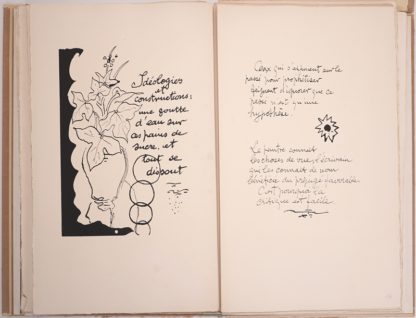 Idéologies
et
constructions:
une goutte
d'eau sur
ces pains de
sucre, et
tout se
dissout
Ceux qui s'arment sur le
passé pour prophétiser
d'ignorer que ce
passé n'est qu'une
hypothèse.
Le peintre connait
les choses de vue, l'écrivain
qui les connait de nom
bénéficie du préjugé favorable.
C'est pourquoi la
critique est facile